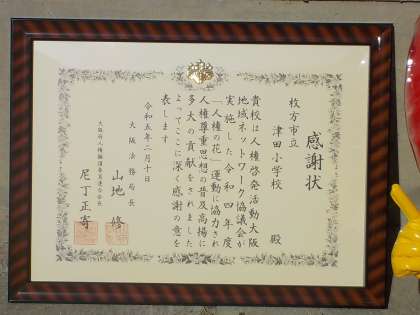 感謝状
枚方市立
津田小学校 殿
貴校は人権啓発活動大阪
地域ネットワーク協議会が
実施した令和四年度
「人権の花」運動に協力され
人権尊重思想の普及高揚に
多大の貢献をされました
よってここに深く感謝の意を
表します
令和五年二月十日
大阪法務局長
山地 修
大阪府人権擁護委員連合会長
尼丁正寄